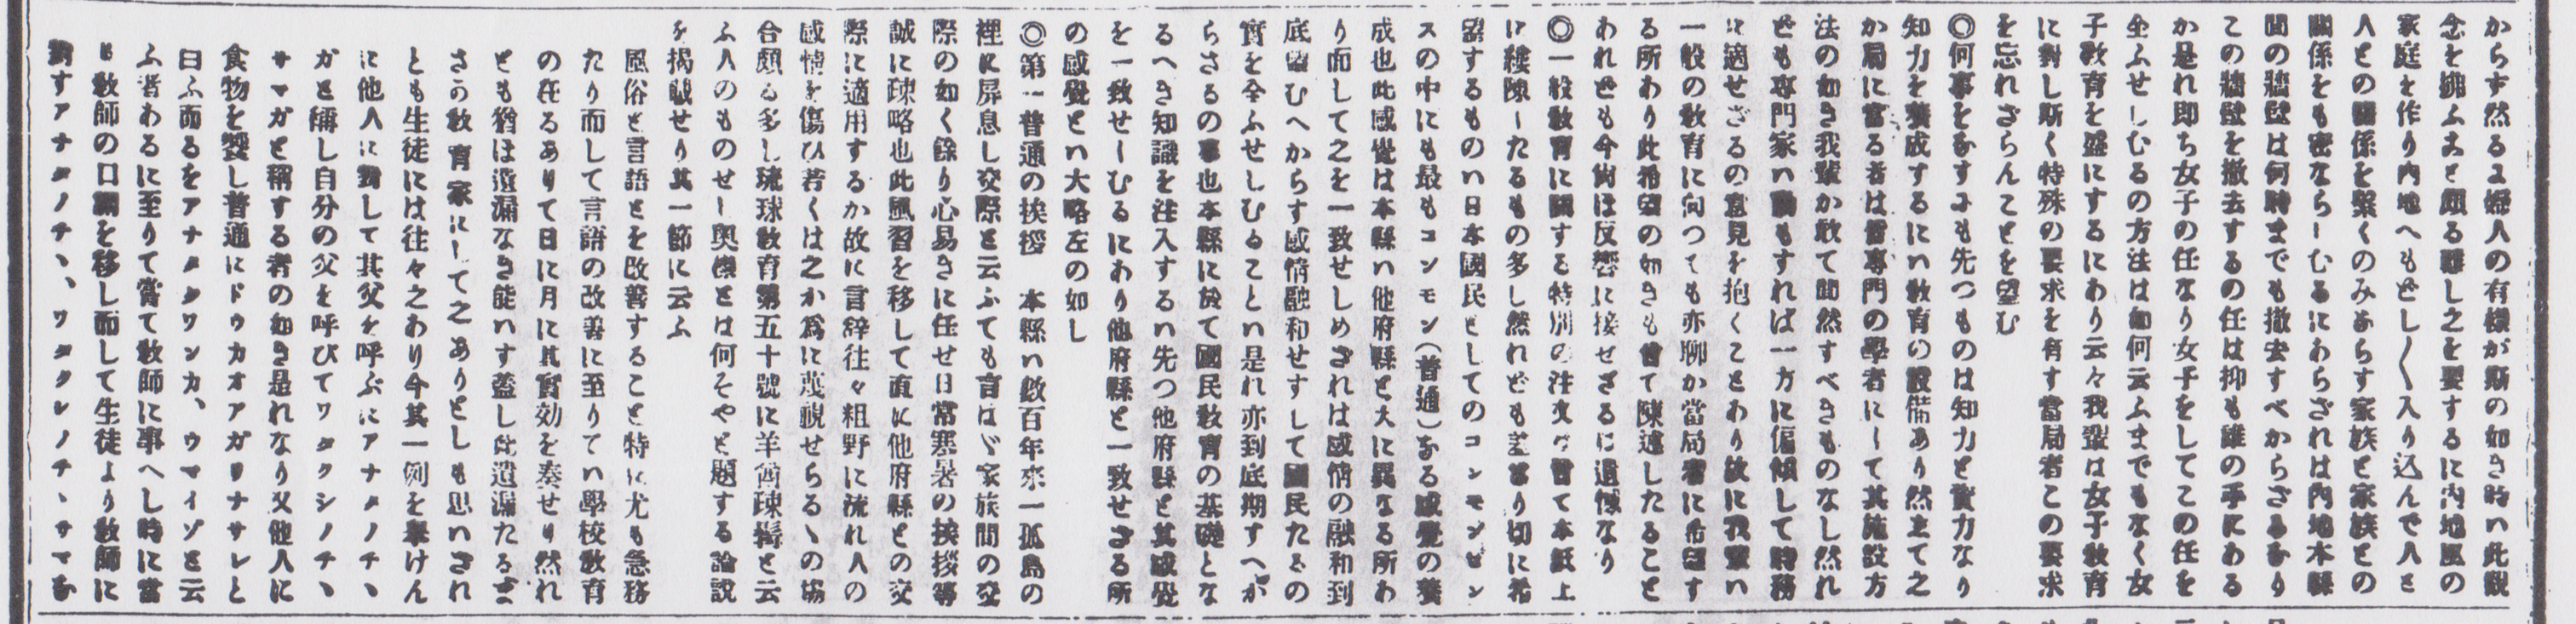 からす然るに婦人の有樣が斯の如き時い此觀
念を拂ふまと頗る難し之を要するに内地風の
家庭を作り内地へもどし〱入り込んで人と
人との關係を繋くのみならす家族と家族との
關係をも密ならしむるにわらされは内地本縣
間の牆壁は何時までも撤去すべからざるなり
この牆壁を撤去するの任は抑も誰の手にある
か是れ即ち女子の任なり女子をしてこの任を
全ふせしむるの方法は如何云ふまでもなく女
子教育を盛にするにわり云々我輩は女子教育
に對し斯く特殊の要求を有す當局者この要求
を忘れざらんことを望む
◎何事をなすにも先つものは知力と資力なり
知力を養成するにい教育の設備あり然して之
か局に當る者は皆專門の學者にして其施設方
法の如き我輩か敢て間然すべきものなし然れ
ども専門家い動もすれば一方に偏傾して時務
に適せざるの意見を抱くことわり故に我輩い
一般の教育に向つても亦聊か當局者に希望す
る所わり此希望の如きも曾て陳述したること
われども今尚は反響に接せざるは遺憾なり
◎一般教育に關する特別の注文は曾て本紙上
に縷陳したるもの多し然れども差當り切に希
望するものい日本國民としてのコンモンセン
スの中にも最もコンモン(普通)なる感覺の養
成也此感覺は本縣い他府縣と大に異なる所わ
り面して之を一致せしめされは感情の融和到
底望むへからす感情融和せすして國民たるの
實を全ふせしむることい是れ亦到底期すへか
らさるの事也本縣に於て國民教育の基礎とな
るへき知識を注入するい先つ他府縣と其感覺
を一致せしむるにわり他府縣と一致せさる所
の感覺とい大略左の如し
◎第一普通の挨拶　本縣い數百年來一孤島の
裡に屏息し交際と云ふても言はゞ家族間の交
際の如く餘り心易きに任せ日常寒暑の挨拶等
誠に疎略也此風習を移して直に他府縣との交
際に適用するか故に言辭往々粗野に流れ人の
感情を傷ひ若くは之か爲に蔑視せらるゝの塲
合頗る多し琉球教育第五十號に羊酋疎髯と云
ふ人のものせし奥樣とは何そやと題する論説
を掲載せり其一節に云ふ
風俗と言語とを改善すること特に尤も急務
たり而して言語の改善に至りてい學校教育
の在るありて日に月に其實効を奏せり然れ
とも猶は遺漏なき能いす蓋し此遺漏たるま
さう教育家にして之ありとしも思いされ
とも生徒には往々之わり今其一例を擧けん
に他人に對して其父を呼ぶにアナタノチヽ
ガと稱し自分の父を呼びてワタクシノチヽ
サマガと稱する者の如き是れなり又他人に
食物を饗し普通にドウカオアガリナサレと
曰ふ而るをアナタタワンカ、ウマイゾと云
ふ者あるに至りて嘗て教師に事へし時に當
り教師の口調を移し而して生徒より教師に
對すアナタノチヽ、ワタクシノチヽサマな